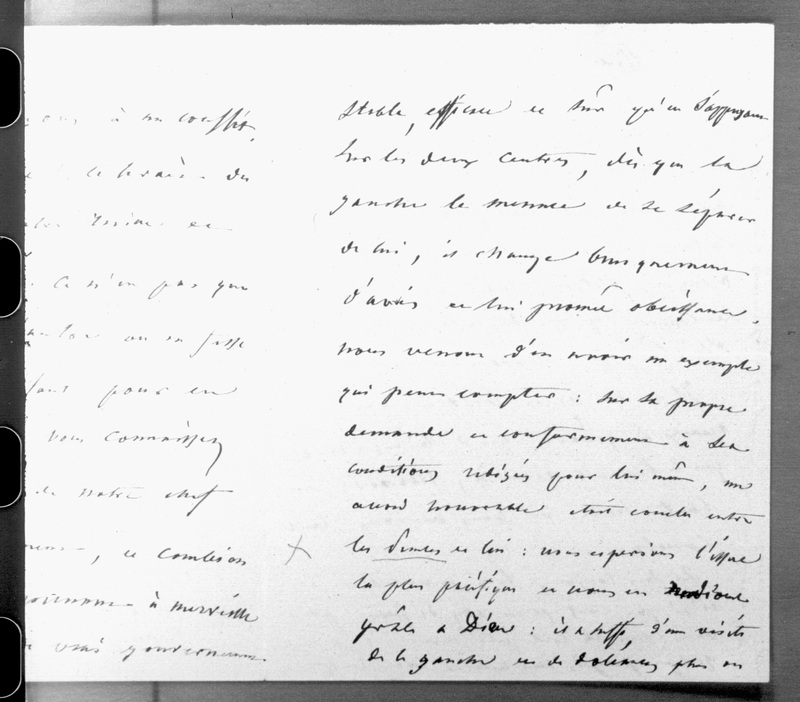 à un conflit,
le terrain du
et
Ce n'est pas que
ou se fasse
pour et
vous connaissez
de notre chef
, ce combien
à merveille
vrai gouvernement
stable, efficace et sûr qu'en s'appuyant
sur les deux centres, dès que la
gauche le menace de se séparer
de lui, il change brusquement
d'avis et lui promet obéissance.
nous venons d'en avoir un exemple
qui peut compter : sur sa propre
demande et conformément à des
conditions rédigées pour lui même, un
accord honorable était conclu entre
les droites et lui : nous espérions l'issue
la plus pacifique et nous en rendions
grâces à Dieu : il a suffi d'une visite
de la gauche et de doléances plus ou